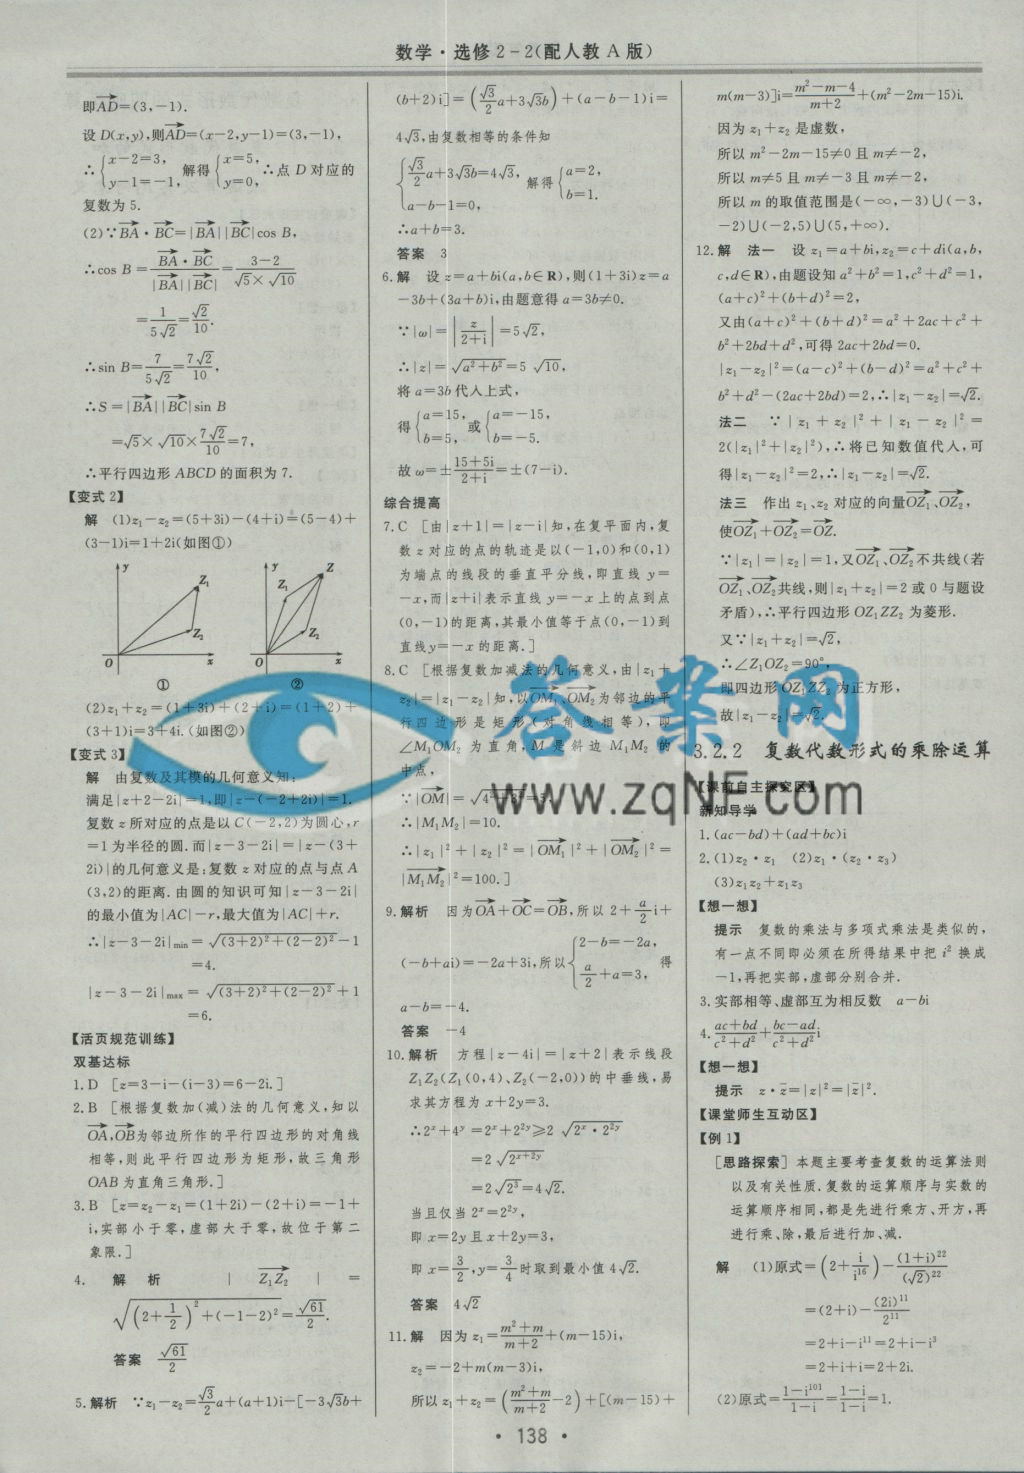 数学·选修2-2(配人教A版)
即AD=(3,-1).
设D(x,y),则AD=(x-2,y-1)=(3,-1),
∴{x-2=3, y-1=-1, 解得{x=5, y=0, ∴点D对应的
复数为5.
(2)∵BA·BC=|BA||BC|cos B,
∴cos B=BA·BC/(|BA||BC|)=(3-2)/(√5×√10)
=1/(5√2)=√2/10.
∴sin B=7/(5√2)=7√2/10,
∴S=|BA||BC|sin B
=√5×√10×7√2/10=7,
∴平行四边形ABCD的面积为7.
【变式2】
解 (1)z₁-z₂=(5+3i)-(4+i)=(5-4)+
(3-1)i=1+2i(如图①)
y Z₁ Z₂ O x y Z₁ Z Z₂ O x
① ②
(2)z₁+z₂=(1+3i)+(2+i)=(1+2)+
(3+1)i=3+4i.(如图②)
【变式3】
解 由复数及其模的几何意义知:
满足|z+2-2i|=1,即|z-(-2+2i)|=1.
复数z所对应的点是以C(-2,2)为圆心,r
=1为半径的圆.而|z-3-2i|=|z-(3+
2i)|的几何意义是:复数z对应的点与点A
(3,2)的距离.由圆的知识可知|z-3-2i|
的最小值为|AC|-r,最大值为|AC|+r.
∴|z-3-2i|min=√((3+2)²+(2-2)²)-1
=4.
|z-3-2i|max=√((3+2)²+(2-2)²)+1
=6.
【活页规范训练】
双基达标
1.D [z=3-i-(i-3)=6-2i.]
2.B [根据复数加(减)法的几何意义,知以
OA,OB为邻边所作的平行四边形的对角线
相等,则此平行四边形为矩形,故三角形
OAB为直角三角形.]
3.B [z=z₂-z₁=(1+2i)-(2+i)=-1+
i,实部小于零,虚部大于零,故位于第二
象限.]
4. 解析 |Z₁Z₂|=
√((2+1/2)²+(-1-2)²)=√61/2.
答案 √61/2
5.解析 ∵z₁-z₂=√3/2a+(a+1)i-[-3√3b+
(b+2)i]=(√3/2a+3√3b)+(a-b-1)i=
4√3,由复数相等的条件知
{√3/2a+3√3b=4√3, a-b-1=0, 解得{a=2, b=1.
∴a+b=3.
答案 3
6.解 设z=a+bi(a,b∈R),则(1+3i)z=a
-3b+(3a+b)i,由题意得a=3b≠0.
∵|ω|=|z/(2+i)|=5√2,
∴|z|=√(a²+b²)=5√10,
将a=3b代入上式,
得{a=15, b=5, 或{a=-15, b=-5.
故ω=±(15+5i)/(2+i)=±(7-i).
综合提高
7.C [由|z+1|=|z-i|知,在复平面内,复
数z对应的点的轨迹是以(-1,0)和(0,1)
为端点的线段的垂直平分线,即直线y=
-x,而|z+i|表示直线y=-x上的点到点
(0,-1)的距离,其最小值等于点(0,-1)到
直线y=-x的距离.]
8.C [根据复数加减法的几何意义,由|z₁+
z₂|=|z₁-z₂|知,以OM₁、OM₂为邻边的平
行四边形是矩形(对角线相等),即
∠M₁OM₂为直角,M是斜边M₁M₂的
中点,
∵|OM|=√(4²+3²)=5,
∴|M₁M₂|=10.
∴|z₁|²+|z₂|²=|OM₁|²+|OM₂|²=
|M₁M₂|²=100.]
9.解析 因为OA+OC=OB,所以2+a/2i+
(-b+ai)=-2a+3i,所以{2-b=-2a, a/2+a=3, 得
a-b=-4.
答案 -4
10.解析 方程|z-4i|=|z+2|表示线段
Z₁Z₂(Z₁(0,4)、Z₂(-2,0))的中垂线,易
求其方程为x+2y=3.
∴2ˣ+4ʸ=2ˣ+2²ʸ≥2√(2ˣ·2²ʸ)
=2√(2ˣ⁺²ʸ)
=2√(2³)=4√2.
当且仅当2ˣ=2²ʸ,
即x=2y且x+2y=3,
即x=3/2,y=3/4时取到最小值4√2.
答案 4√2
11.解 因为z₁=(m²+m)/(m+2)+(m-15)i,
z₂=-2+m(m-3)i,
所以z₁+z₂=((m²+m)/(m+2)-2)+[(m-15)+
m(m-3)]i=(m²-m-4)/(m+2)+(m²-2m-15)i.
因为z₁+z₂是虚数,
所以m²-2m-15≠0且m≠-2,
所以m≠5且m≠-3且m≠-2,
所以m的取值范围是(-∞,-3)∪(-3,
-2)∪(-2,5)∪(5,+∞).
12.解 法一 设z₁=a+bi,z₂=c+di(a,b,
c,d∈R),由题设知a²+b²=1,c²+d²=1,
(a+c)²+(b+d)²=2,
又由(a+c)²+(b+d)²=a²+2ac+c²+
b²+2bd+d²,可得2ac+2bd=0.
|z₁-z₂|²=(a-c)²+(b-d)²=a²+c²+
b²+d²-(2ac+2bd)=2,∴|z₁-z₂|=√2.
法二 ∵|z₁+z₂|²+|z₁-z₂|²=
2(|z₁|²+|z₂|²),∴将已知数值代入,可
得|z₁-z₂|²=2,∴|z₁-z₂|=√2.
法三 作出z₁、z₂对应的向量OZ₁、OZ₂,
使OZ₁+OZ₂=OZ.
∵|z₁|=|z₂|=1,又OZ₁、OZ₂不共线(若
OZ₁、OZ₂共线,则|z₁+z₂|=2或0与题设
矛盾),∴平行四边形OZ₁ZZ₂为菱形.
又∵|z₁+z₂|=√2,
∴∠Z₁OZ₂=90°,
即四边形OZ₁ZZ₂为正方形,
故|z₁-z₂|=√2.
3.2.2 复数代数形式的乘除运算
【课前自主探究区】
新知导学
1.(ac-bd)+(ad+bc)i
2.(1)z₂·z₁ (2)z₁·(z₂·z₃)
(3)z₁z₂+z₁z₃
【想一想】
提示 复数的乘法与多项式乘法是类似的,
有一点不同即必须在所得结果中把i²换成
-1,再把实部,虚部分别合并.
3.实部相等、虚部互为相反数 a-bi
4.(ac+bd)/(c²+d²)+(bc-ad)/(c²+d²)i
【想一想】
提示 z·z̄=|z|²=|z̄|².
【课堂师生互动区】
【例1】
[思路探索] 本题主要考查复数的运算法则
以及有关性质.复数的运算顺序与实数的
运算顺序相同,都是先进行乘方、开方,再
进行乘、除,最后进行加、减.
解 (1)原式=(2+i/i¹⁶)-(1+i)²²/(√2)²²
=(2+i)-(2i)¹¹/2¹¹
=2+i-i¹¹=2+i-i³
=2+i+i=2+2i.
(2)原式=(1-i¹⁰¹)/(1-i)=(1-i)/(1-i)=1.
答案网
www.zqNF.com
·138·